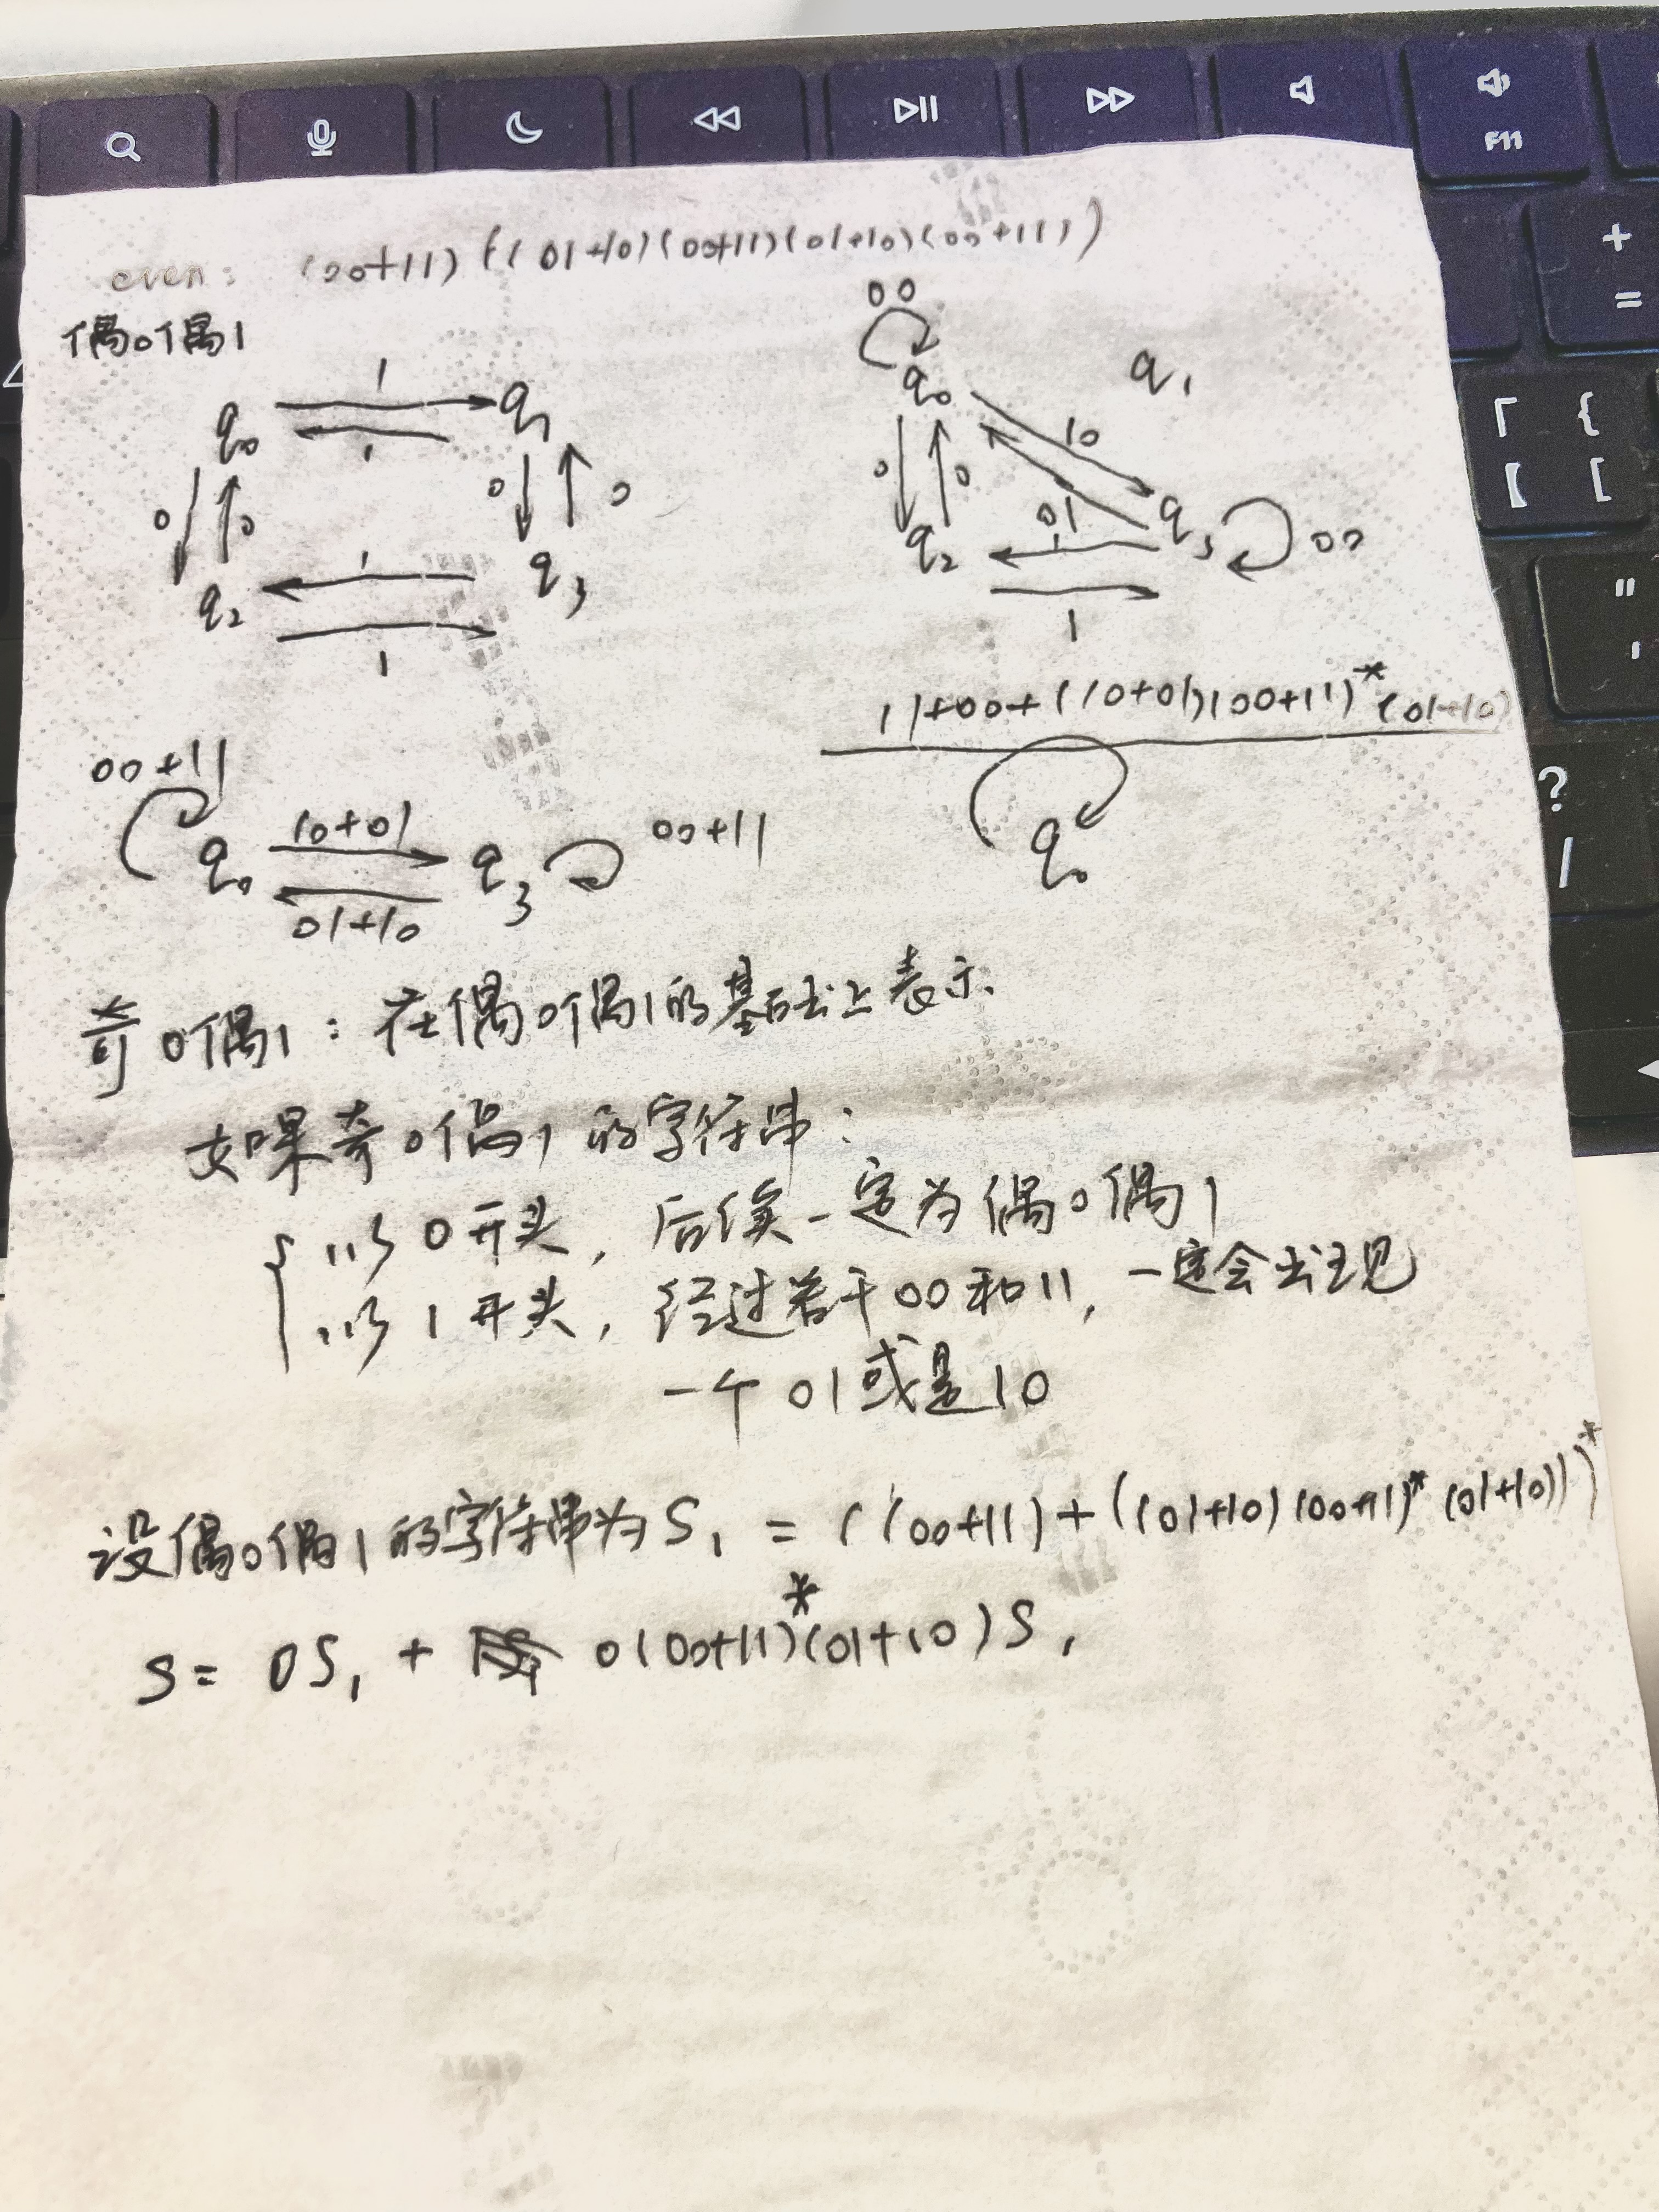 F11
+
=
「 {
【 [
"
'
?
/
even: (00+11)((01+10)(00+11)(01+10)(00+11))
偶0偶1
00
q0 1 q1
1
0 0 0 0
q2 1 q3
1
q0 10 q1
0 0 01
q2 1 q3 00
1
11+00+(10+01)(00+11)*(01+10)
q0
00+11
q0 10+01 q3 00+11
01+10
奇0偶1：在偶0偶1的基础上表示、
如果奇0偶1的字符串：
以0开头，后续一定为偶0偶1
以1开头，经过若干00和11，一定会出现
一个01或是10
设偶0偶1的字符串为S1 = ((00+11)+((01+10)(00+11)*(01+10)))*
S= 0S1 + 0(00+11)*(01+10)S1